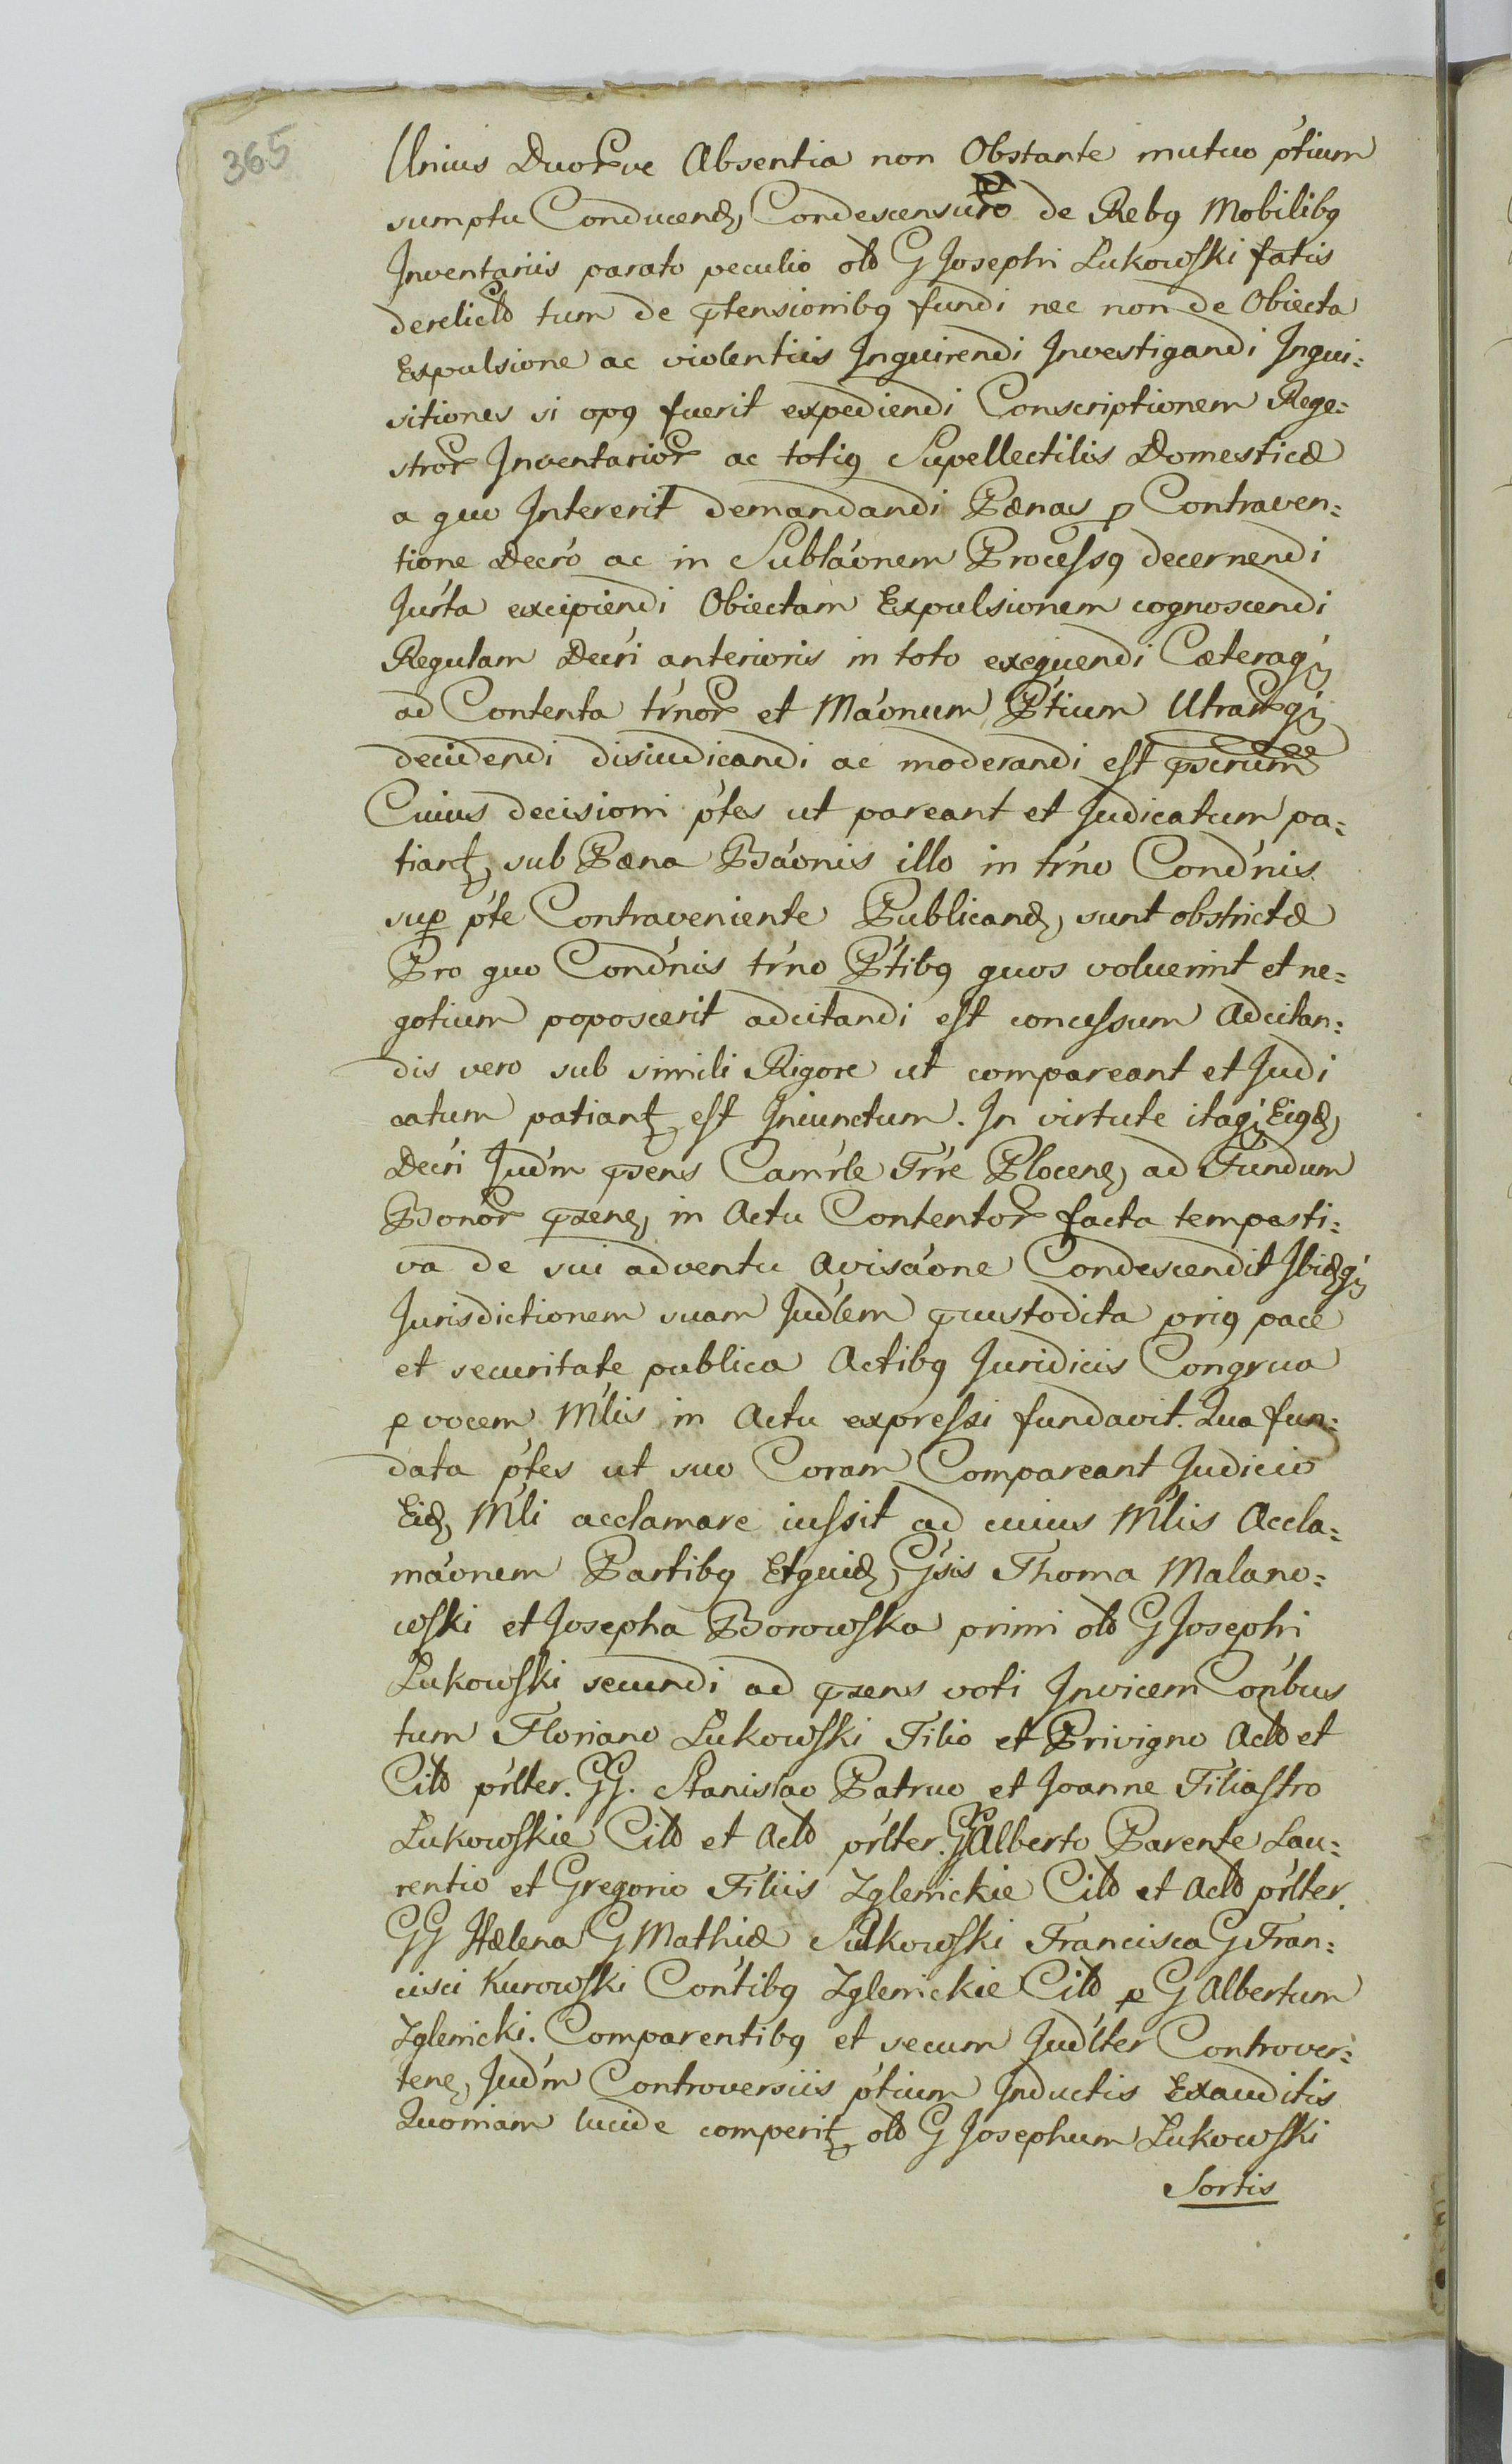 365
Unius Duorꝝve Absentia non Obstante mutuo p'tium
sumptu Conducenđ, Condescensuro de Rebꝯ Mobilibꝯ
Inventariis parato peculio olb G Josephi Łukowſki fatis
derelicto tum de p̄tensionibꝯ fundi nec non de Obiecta
Expulsione ac violentiis Inquirendi Investigandi Inqui=
sitiones si opꝯ fuerit expediendi Conscriptionem Rege=
stroꝝ Inventarioꝝ ac totiꝯ Supellectilis Domesticæ
a quo Intererit demandandi Pœnas p Contraven=
tione Decr'o ac in Subla'onem Proceſsꝯ decernendi
Jur'ta excipiendi Obiectam Expulsionem cognoscendi
Regulam Decr'i anterioris in toto exequendi Cæteraq'ꝫ
ad Contenta tr'noꝝ et Ma'onum P'tium Utraruq'ꝫ
decidendi disiudicandi ac moderandi eſt p̄scrum
Cuius decisioni p'tes ut pareant et Judicatum pa=
tiantꝫ, sub Pœna Ba'onis illo in tr'no Cond'nis
suꝑ p'te Contraveniente Publicanđ, sunt obstrictæ
Pro quo Cond'nis tr'no P'tibꝯ quos voluerint et ne=
gotium poposcerit adcitandi eſt conceſsum Adcitan=
dis vero sub simili Rigore ut compareant et Judi
catum patiantꝫ eſt Iniunctum. In virtute itaq'ꝫ Eiꝯđ,
Decr'i Jud'm p̄sens Cam'rle Tr're Plocenꝫ, ad Fundum
Bonoꝝ p̄senꝫ, in Actu Contentoꝝ facta tempesti=
va de sui adventu Avisa'one Condescendit Ibiđq'ꝫ
Jurisdictionem suam Jud'lem p̄custodita priꝯ pace
et securitate publica Actibꝯ Juridicis Congrua
ꝑ vocem M'lis in Actu expreſsi fundavit. Qua fun=
data p'tes ut suo Coram Compareant Judicio
Eiđ, M'li acclamare iuſsit ad cuius M'lis Accla=
ma'onem Partibꝯ Etquiđ, G'sis Thoma Malano=
wſki et Josepha Borowſka primi olb G Josephi
Łukowſki secundi ad p̄sens voti Invicem Con'bus
tum Floriano Łukowſki Filio et Privigno Actb et
Citb p'rlter. GG. Stanislao Patruo et Joanne Filiaſtro
Łukowſkie Citb et Actb p'rlter. GG Alberto Parente Lau=
rentio et Gregorio Filiis Zglenickie Citb et Actb p'rlter.
GG Hælena G Mathiæ Sulkowſki Francisca G Fran=
cisci Kurowſki Con'tibꝯ Zglenickie Citb ꝑ G Albertum
Zglenicki. Comparentibꝯ et secum Jud'lter Controver=
tenꝫ, Jud'm Controversiis p'tium Inductis Exauditis
Quoniam lucide comperitꝫ olb G Josephum Łukowſki
Sortis